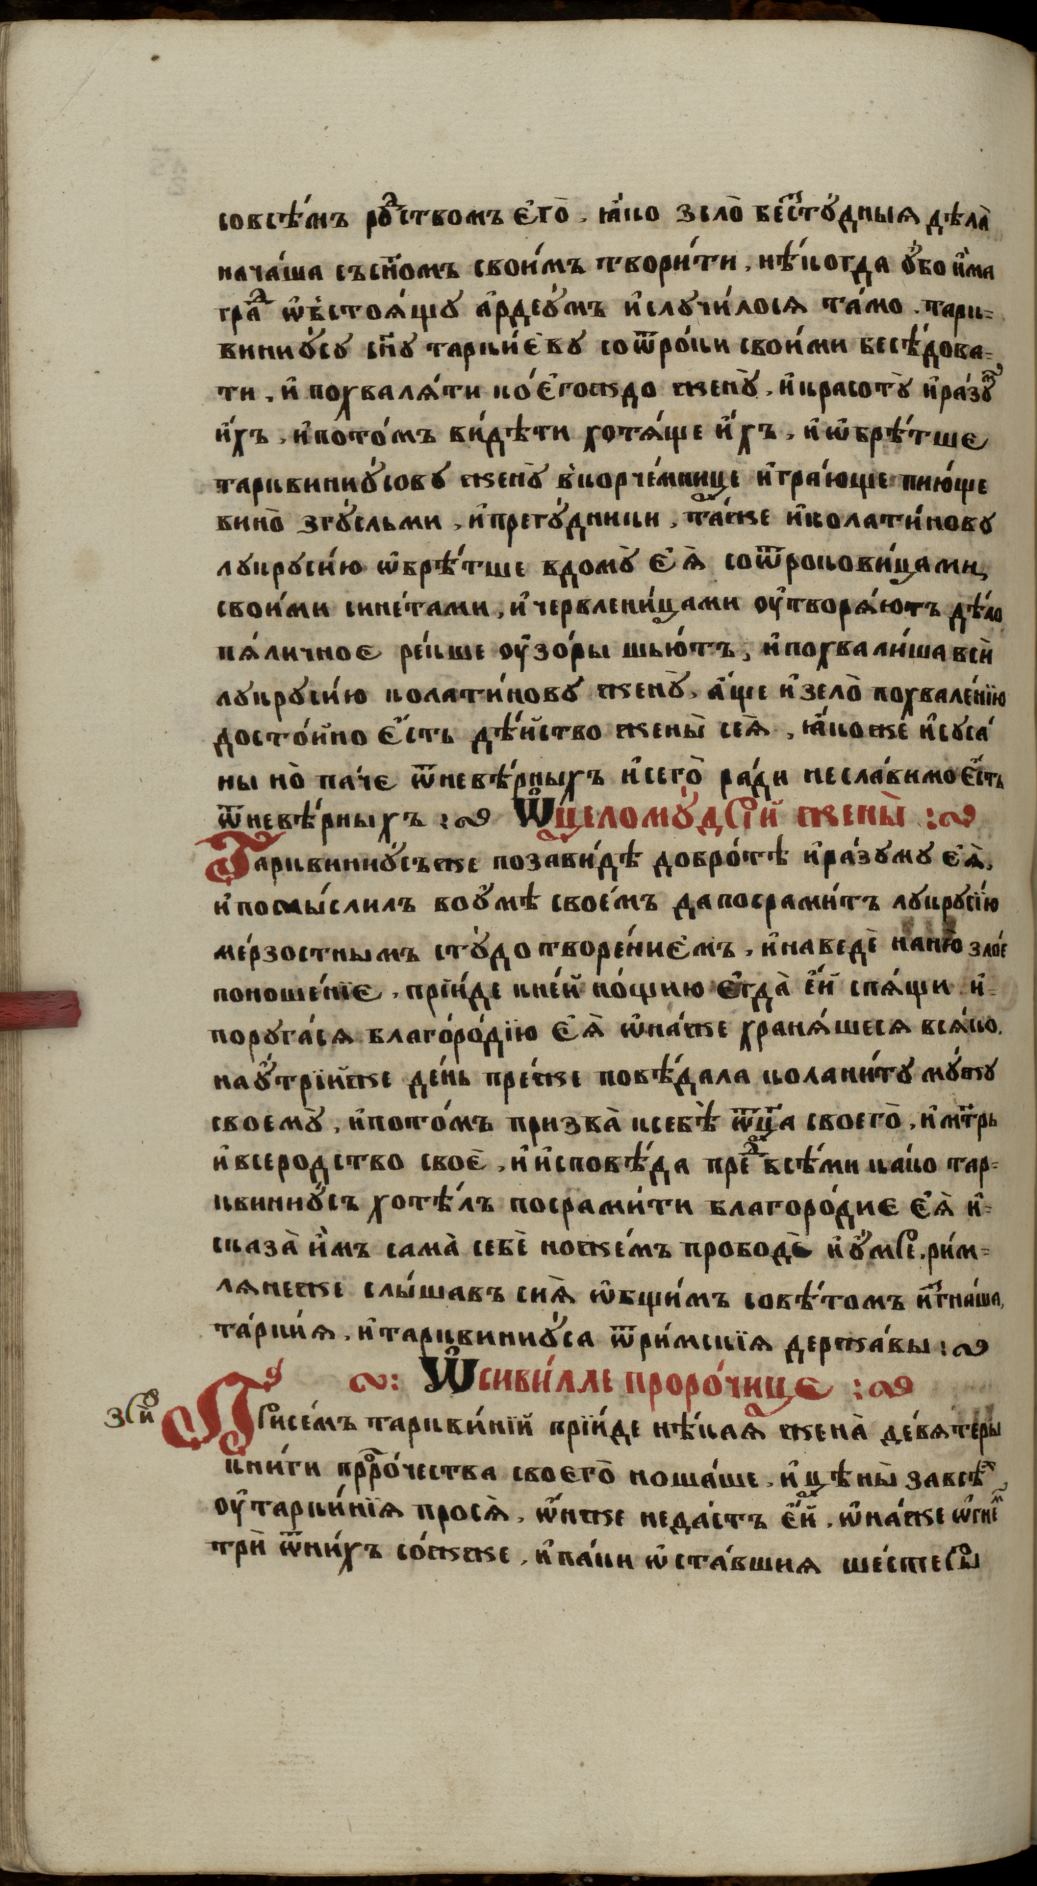 совсѣ́мъ ро́дством̾ъ є҆го̀ . ꙗ҆́ко зѣло̀ бестꙋ́дныѧ дѣла̀
нача́ша съсн҃омъ свои́мъ твори́ти , нѣ́когда ᲂу҆́бо и҆́ма
гра́д ѡ҆бстоѧ́щꙋ а҆рдеꙋ́мъ и҆слꙋчи́лосѧ та́мо . тарк-
виниꙋ́сꙋ сн҃ꙋ тарки́євꙋ соѿро́ки свои́ми бесѣ́дова-
ти , и҆ похвалѧ́ти ко́єгождо женꙋ̀ , и҆красотꙋ̀ и҆ра́зꙋм
и҆́хъ , и҆пото́мъ ви́дѣти хотѧ́ще и҆́хъ , и҆ѡ҆брѣ́тше
тарквиниꙋ́совꙋ женꙋ̀ в̾корче́мнице и҆гра́юще пию́ще
вино̀ згꙋ́сльми , и҆прегꙋ́дницы , та́кже и҆колати́новꙋ
лꙋкрꙋси́ю ѡ҆брѣ́тше вдомꙋ̀ є҆ѧ̀ соѿрокови́цами
свои́ми сине́тами , и҆червлени́цами ᲂу҆творѧ́ютъ дѣ́ло
пѧ́личноє ре́кше ᲂу҆зо́ры шью́тъ , и҆похвали́ша всѝ
лꙋкрꙋси́ю колати́новꙋ женꙋ̀ , а҆́ще и҆зело̀ похвале́нїю
досто́йно є҆́сть дѣ́йство жены̀ сеѧ̀ , ꙗ҆́коже и҆сꙋса́
ны но̀ па́чє ѿневѣ́рныхъ и҆сего̀ ра́ди несла́вимо є҆́сть
ѿневѣ́рныхъ :~ Ѡ҆целомꙋ́дрїй жены̀ :~
Тарквиниꙋ́съже позави́дѣ добро́тѣ и҆ра́зꙋмꙋ є҆ѧ̀ ,
и҆помы́слилъ воᲂу҆мѣ̀ своє́мъ дапосрами́тъ лꙋкрꙋсі́ю
ме́рзостнымъ стꙋ̀дотворе́ниємъ , и҆наведѐ наню̀ зло́є
поноше́нїє , прїи́де кне́й но́щию є҆гда̀ є҆́й спѧ́щи и҆-
порꙋга́сѧ благоро́дїю є҆ѧ̀ ѡ҆на́же хранѧ́шесѧ всѧ́ко .
наᲂу҆́трїйже де́нь пре́же повѣ́дала коланитꙋ мꙋ́жꙋ
своємꙋ̀ , и҆пото́мъ призва̀ ксебѣ̀ ѿц҃а своєго̀ , и҆мт҃рь
и҆всеродство своє̀ , и҆и҆сповѣ́да пре́д всѣ́ми како тар-
квиниꙋ́съ хотѣ́лъ посрами́ти благоро́диє є҆ѧ̀ и҆-
сказа̀ и҆́мъ сама̀ себѐ ноже́мъ прободѐ и҆ᲂу҆́мре . ри́м-
лѧнеже слы́шавъ сиѧ̀ ѡ҆́бщимъ совѣ́томъ и҆згна́ша
та́ркиѧ , и҆тарквиниꙋ́са ѿри́мскїѧ держа́вы :~
~: Ѡ҆сиви́лле проро́чице :~
зри̇̀ Присе́мъ таркви́нїй прїи́де нѣ́каѧ жена̀ де́вѧтеры
кни́ги прⷪ҇ро́чества своєго̀ ноша́ше , и҆ цѣны̀ завсѣ̀х
ᲂу҆тарки́нїѧ просѧ̀ , ѡ҆́нже неда́стъ є҆́й , ѡ҆на́же ѡ҆гне́м
трѝ ѿни́хъ со́жже , и҆па́ки ѡ҆ста́вшиѧ ше́стеры